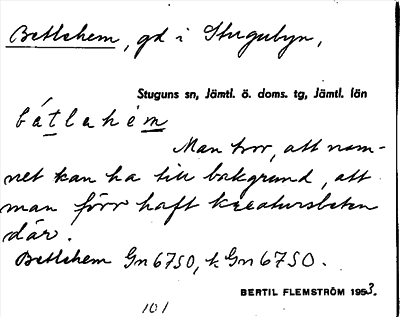 Betlehem, gd i Stugubyn,
Stuguns sn, Jämtl. ö. doms. tg, Jämtl. län
bátlahèm
Man tror, att nam-
net kan ha till bakgrund, att
man förr haft kreatursbeten
där.
Betlehem Gn 6750, k Gn 6750.
BERTIL FLEMSTRÖM 1953.
101